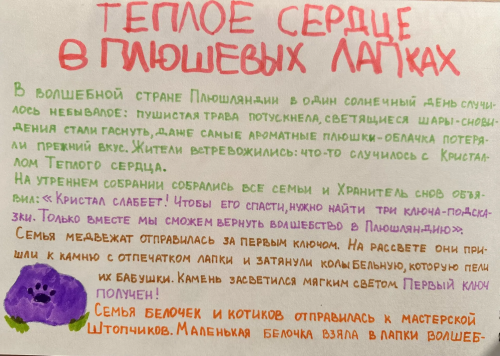 ТЕПЛОЕ СЕРДЦЕ
В ПЛЮШЕВЫХ ЛАПКАХ
В ВОЛШЕБНОЙ СТРАНЕ ПЛЮШЛЯНДИИ В ОДИН СОЛНЕЧНЫЙ ДЕНЬ СЛУЧИ-
ЛОСЬ НЕБЫВАЛОЕ: ПУШИСТАЯ ТРАВА ПОТУСКНЕЛА, СВЕТЯЩИЕСЯ ШАРЫ-СНОВИ-
ДЕНИЯ СТАЛИ ГАСНУТЬ, ДАЖЕ САМЫЕ АРОМАТНЫЕ ПЛЮШКИ-ОБЛАЧКА ПОТЕРЯ-
ЛИ ПРЕЖНИЙ ВКУС. ЖИТЕЛИ ВСТРЕВОЖИЛИСЬ: ЧТО-ТО СЛУЧИЛОСЬ С КРИСТАЛ-
ЛОМ ТЕПЛОГО СЕРДЦА.
НА УТРЕННЕМ СОБРАНИИ СОБРАЛИСЬ ВСЕ СЕМЬИ И ХРАНИТЕЛЬ СНОВ ОБЪЯ-
ВИЛ: «КРИСТАЛ СЛАБЕЕТ! ЧТОБЫ ЕГО СПАСТИ, НУЖНО НАЙТИ ТРИ КЛЮЧА-ПОДСКА-
ЗКИ. ТОЛЬКО ВМЕСТЕ МЫ СМОЖЕМ ВЕРНУТЬ ВОЛШЕБСТВО В ПЛЮШЛЯНДИЮ».
СЕМЬЯ МЕДВЕЖАТ ОТПРАВИЛАСЬ ЗА ПЕРВЫМ КЛЮЧОМ. НА РАССВЕТЕ ОНИ ПРИ-
ШЛИ К КАМНЮ С ОТПЕЧАТКОМ ЛАПКИ И ЗАТЯНУЛИ КОЛЫБЕЛЬНУЮ, КОТОРУЮ ПЕЛИ
ИХ БАБУШКИ. КАМЕНЬ ЗАСВЕТИЛСЯ МЯГКИМ СВЕТОМ. ПЕРВЫЙ КЛЮЧ
ПОЛУЧЕН!
СЕМЬЯ БЕЛОЧЕК И КОТИКОВ ОТПРАВИЛАСЬ К МАСТЕРСКОЙ
ШТОПЧИКОВ. МАЛЕНЬКАЯ БЕЛОЧКА ВЗЯЛА В ЛАПКИ ВОЛШЕБ-